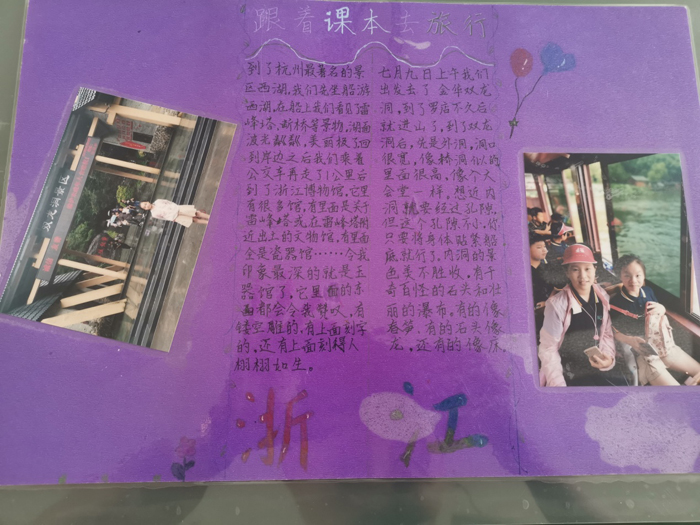 跟着课本去旅行
到了杭州最著名的景
区西湖,我们先坐船游
西湖,在船上我们看了雷
峰塔、断桥等景物,湖面
波光粼粼,美丽极了回
到岸边之后我们乘着
公交车再走了1公里后
到了浙江博物馆,它里
有很多馆,有里面是关于
雷峰塔或在雷峰塔附
近出土的文物馆,有里面
全是瓷器馆……令我
印象最深的就是玉
器馆了,它里面的东
西都会令我赞叹,有
镂空雕的,有上面刻字
的,还有上面刻得人
栩栩如生。
七月九日上午我们
出发去了金华双龙
洞,到了景店不久后
就进山了,到了双龙
洞后,先是外洞,洞口
很宽,像桥洞似的
里面很高,像个大
会堂一样,想近内
洞就要经过孔隙,
但这个孔隙不小,你
只要将身体贴紧船
底就行了,内洞的景
色美不胜收,有千
奇百怪的石头和壮
丽的瀑布,有的像
春笋,有的石头像
龙,还有的像床,
浙江